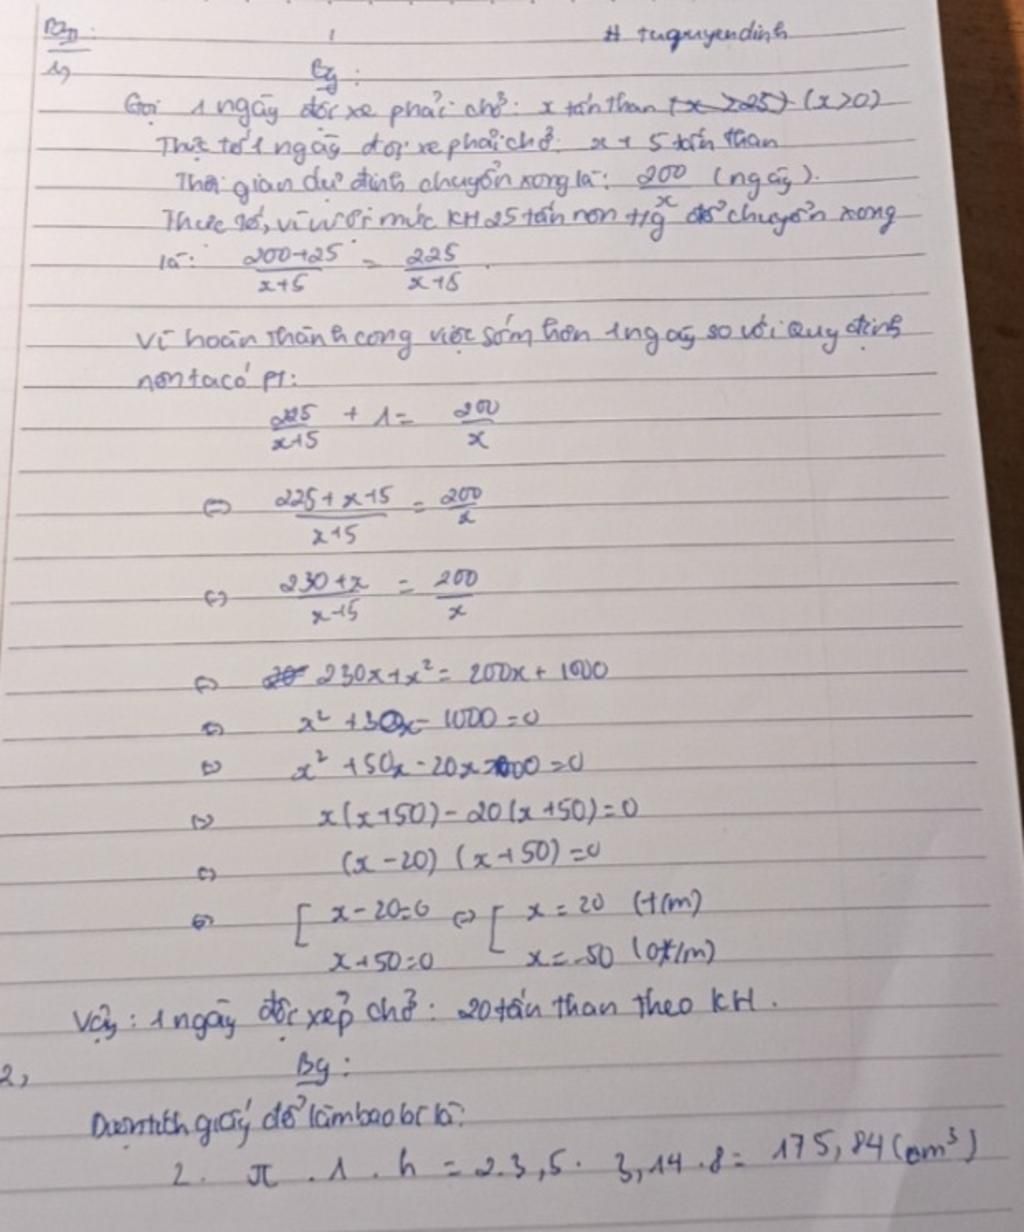 # tuquyendinh
1,
Bg:
Gọi 1 ngày đội xe phải chở: x tấn than (x > 25) (x>0)
Thực tế 1 ngày đội xe phải chở: x + 5 tấn than
Thời gian dự định chuyển xong là: 200/x (ngày).
Thực tế, vì vượt mức KH 25 tấn nên t/g để chuyển xong
là: (200+25)/(x+5) = 225/(x+5).
Vì hoàn thành công việc sớm hơn 1 ngày so với quy định
nên ta có PT:
225/(x+5) + 1 = 200/x
⇔ (225+x+5)/(x+5) = 200/x
⇔ (230+x)/(x+5) = 200/x
⇔ 230x+x² = 200x + 1000
⇔ x² +30x - 1000 = 0
⇔ x² +50x - 20x - 1000 = 0
⇔ x(x+50) - 20(x+50) = 0
⇔ (x-20) (x+50) = 0
⇔ [ x-20=0 ⇔ [ x = 20 (t/m)
x+50=0 x = -50 (0t/m)
Vậy: 1 ngày đội xe chở: 20 tấn than theo KH.
2, Bg:
Diện tích giấy để làm bao bì là:
2. π . 1 . h = 2.3,5. 3,14.8 = 175,84 (cm³)